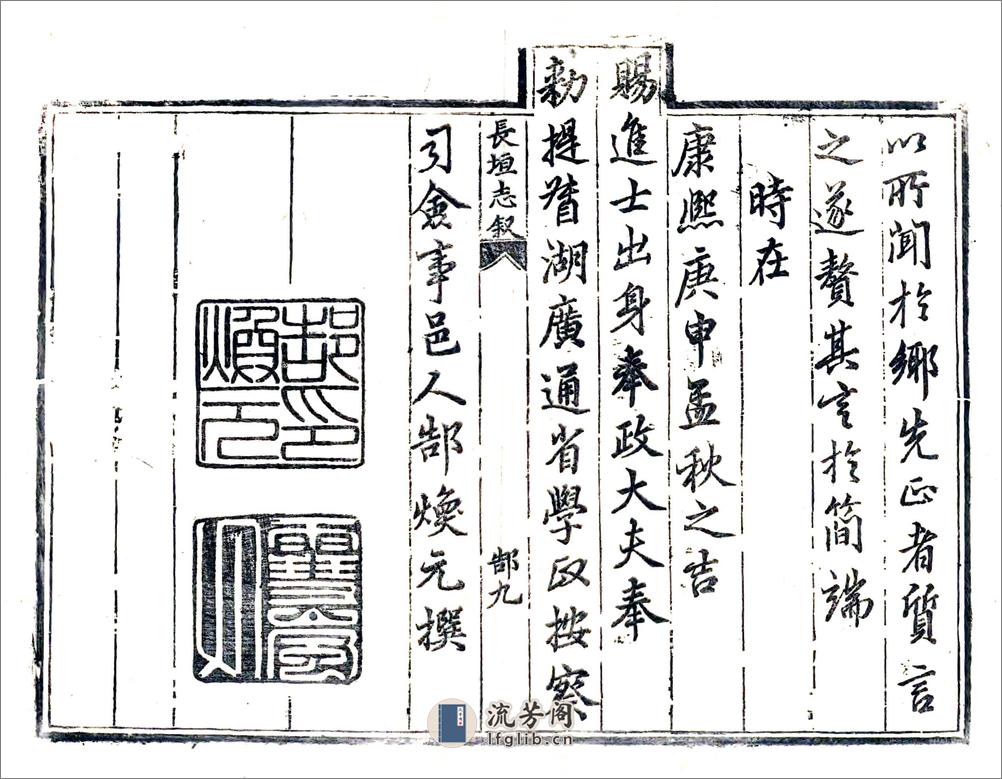 以所聞於鄉先正者質言
之遂贅其言於簡端
時在
康熙庚申孟秋之吉
賜進士出身奉政大夫奉
勅提督湖廣通省學政按察
長垣志叙
郜九
司僉事邑人郜煥元撰
郜印煥元
流芳阁
lfglib.cn